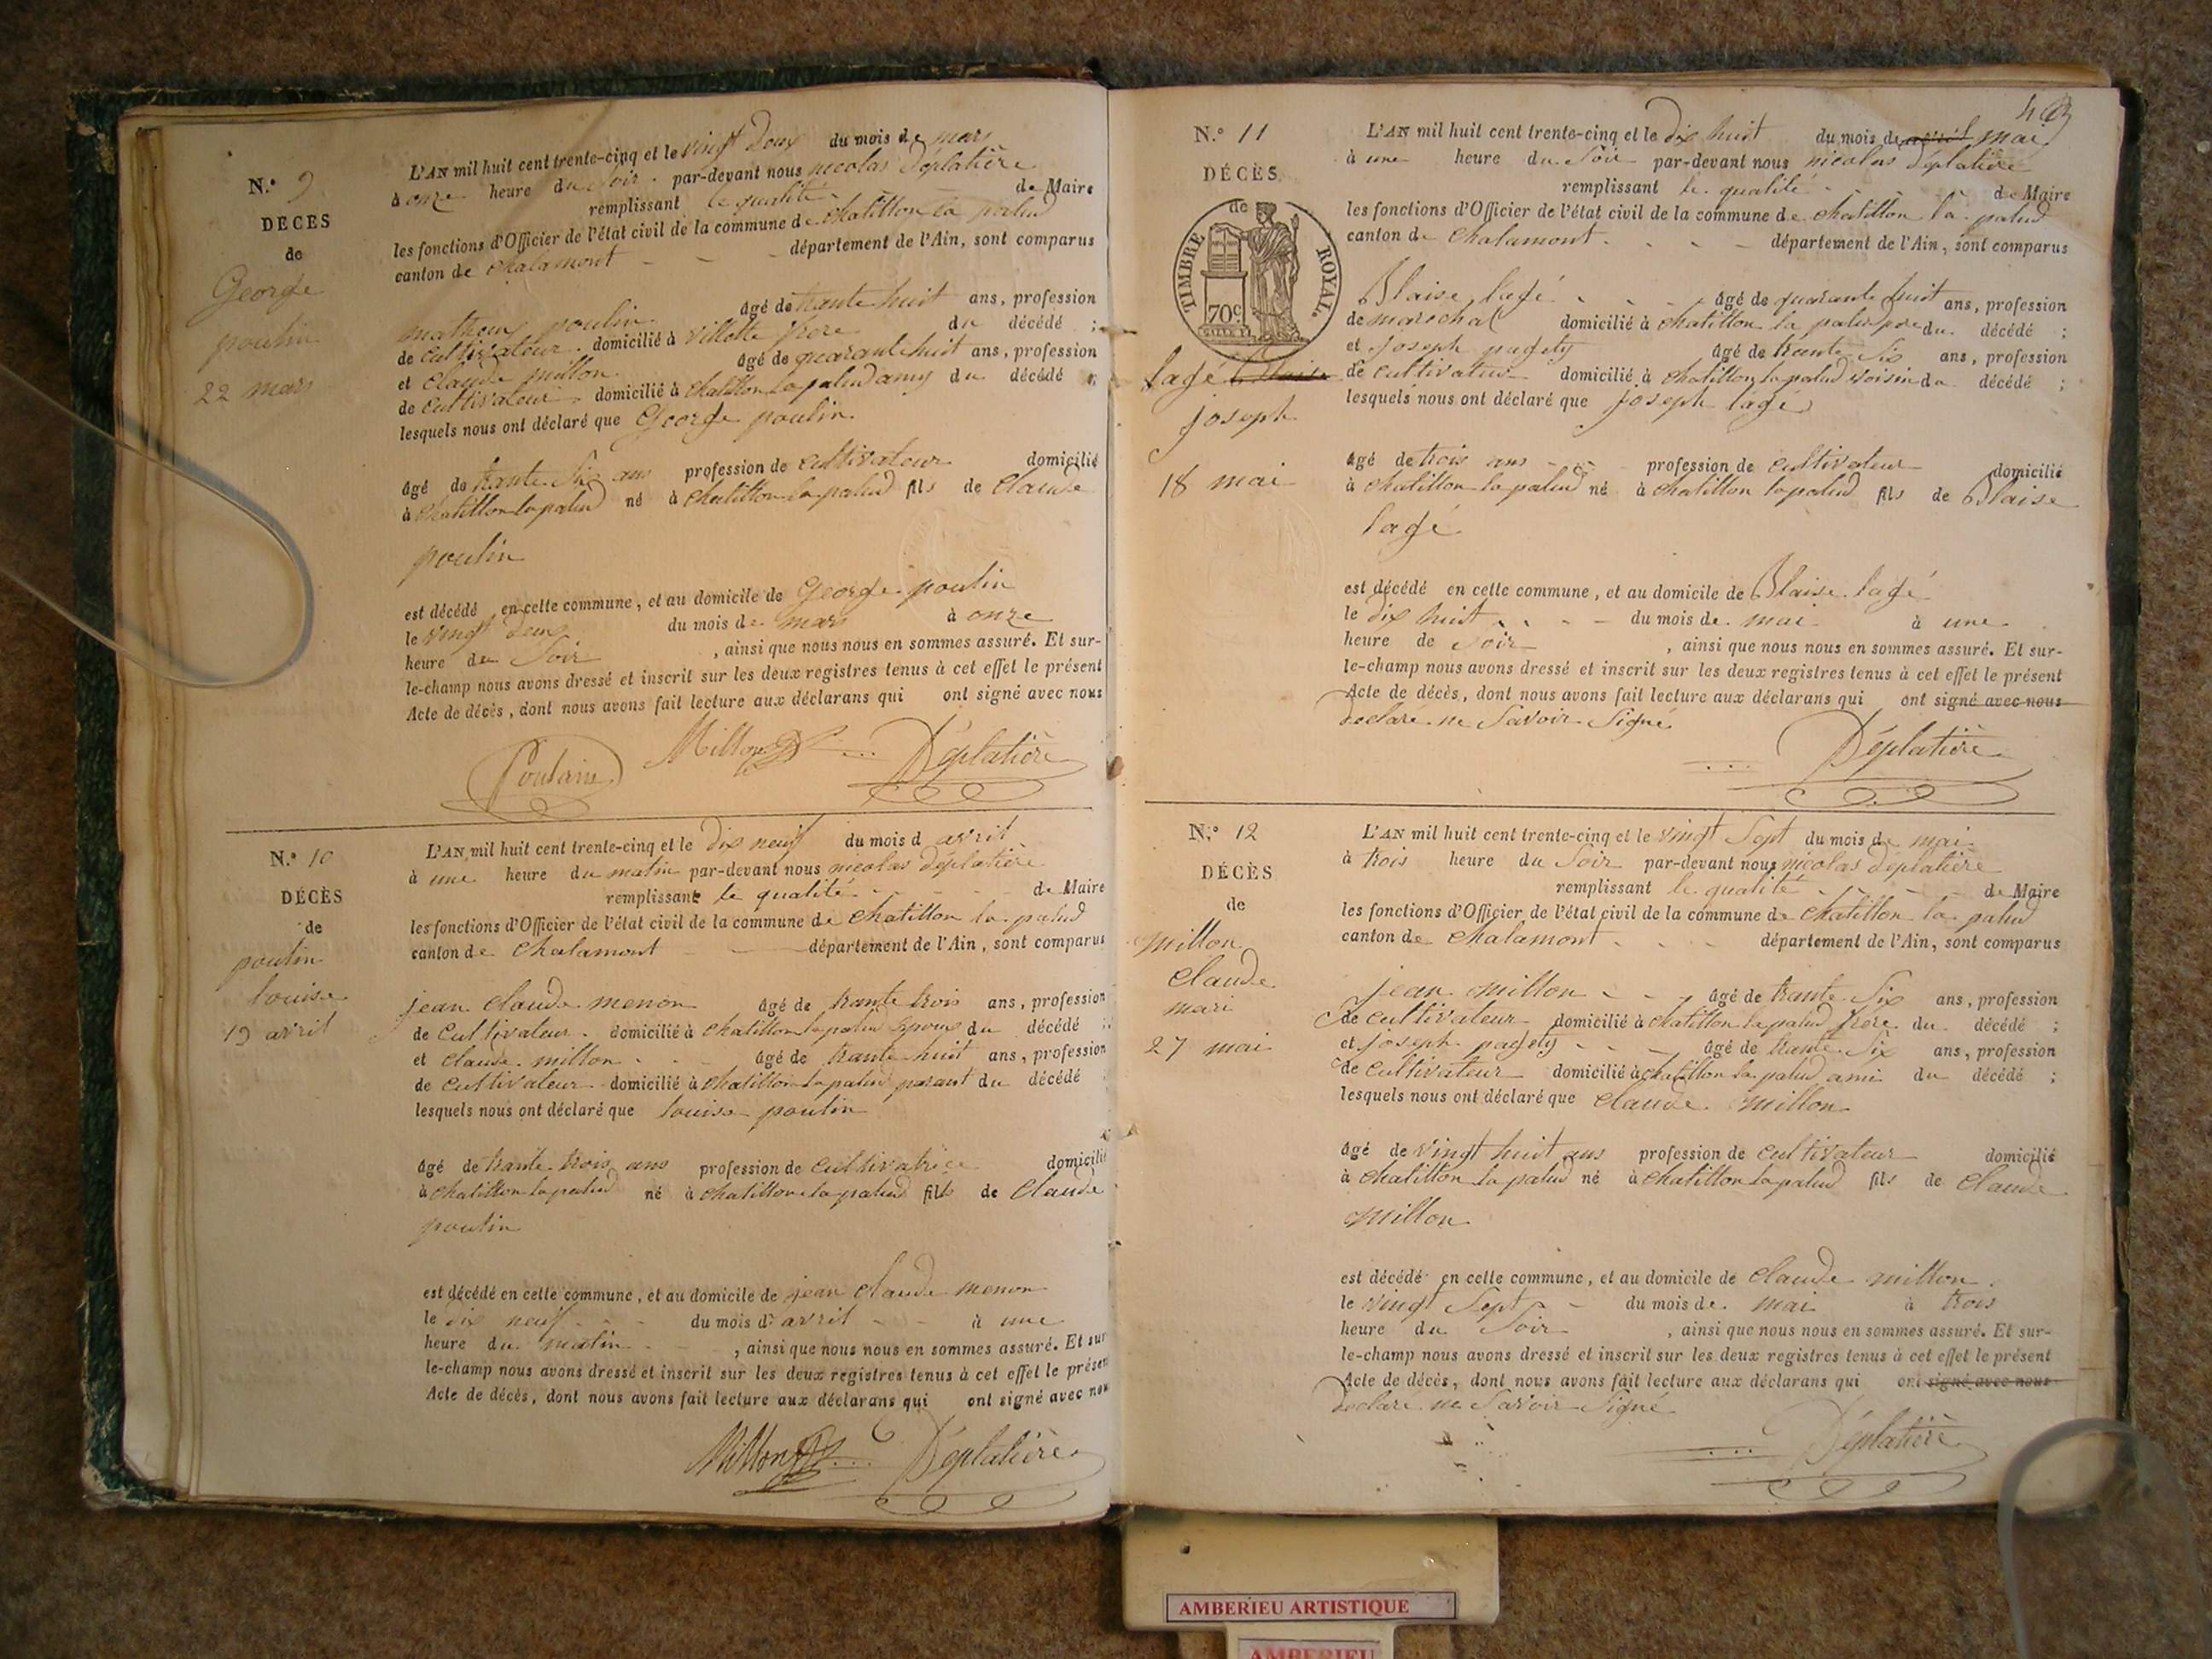 N.° 9
DÉCÈS
de
George
poulin
22 mars
L'AN mil huit cent trente-cinq et le vingt deux du mois de mars
à onze heure du soir par-devant nous nicolas Déplatière
remplissant le qualité de Maire
les fonctions d'Officier de l'état civil de la commune de chatillon la palud
canton de chalamont - - - département de l'Ain, sont comparus
mathieu poulin âgé de trante huit ans, profession
de cultivateur domicilié à villette frere du décédé ;
et claude millon âgé de quarante huit ans, profession
de cultivateur domicilié à chatillon la palud amy du décédé ;
lesquels nous ont déclaré que George poulin
âgé de trante six ans profession de cultivateur domicilié
à chatillon la palud né à chatillon la palud fils de claude
poulin
est décédé en cette commune, et au domicile de George poulin
le vingt deux du mois de mars à onze
heure du soir , ainsi que nous nous en sommes assuré. Et sur-
le-champ nous avons dressé et inscrit sur les deux registres tenus à cet effet le présent
Acte de décès, dont nous avons fait lecture aux déclarans qui ont signé avec nous
Poulain Millon Déplatière
N.° 10
DÉCÈS
de
poulin
louise
19 avril
L'AN mil huit cent trente-cinq et le dix neuf du mois d avril
à une heure du matin par-devant nous nicolas déplatière
remplissant le qualité - - - - de Maire
les fonctions d'Officier de l'état civil de la commune de chatillon la palud
canton de chalamont - - département de l'Ain, sont comparus
jean claude menon âgé de trante trois ans, profession
de cultivateur domicilié à chatillon la palud Epoux du décédé ;
et claude millon - - - âgé de trante huit ans, profession
de cultivateur domicilié à chatillon la palud parant du décédé
lesquels nous ont déclaré que louise poulin
âgé de trante trois ans profession de cultivatrice domicilié
à chatillon la palud né à chatillon la palud fille de claude
poulin
est décédé en cette commune, et au domicile de jean claude menon
le dix neuf - - - du mois d'avril - - à une
heure du matin , ainsi que nous nous en sommes assuré. Et sur
le-champ nous avons dressé et inscrit sur les deux registres tenus à cet effet le présen
Acte de décès, dont nous avons fait lecture aux déclarans qui ont signé avec nou
Millon Déplatière
N.° 11
DÉCÈS
de
TIMBRE ROYAL.
70c
lagé blaise
joseph
18 mai
L'AN mil huit cent trente-cinq et le dix huit du mois de avril mai
à une heure du soir par-devant nous nicolas déplatière
remplissant le qualité - de Maire
les fonctions d'Officier de l'état civil de la commune de chatillon la palud
canton de chalamont - - - - département de l'Ain, sont comparus
Blaise lagé - - - âgé de quarante huit ans, profession
de marechal domicilié à chatillon la palud pere du décédé ;
et joseph pagety âgé de trante six ans, profession
de cultivateur domicilié à chatillon la palud voisin du décédé ;
lesquels nous ont déclaré que joseph lagé
âgé de trois ans - - - profession de cultivateur domicilié
à chatillon la palud né à chatillon la palud fils de Blaise
lagé
est décédé en cette commune, et au domicile de Blaise lagé
le dix huit - - - - du mois de mai à une
heure de soir , ainsi que nous nous en sommes assuré. Et sur-
le-champ nous avons dressé et inscrit sur les deux registres tenus à cet effet le présent
Acte de décès, dont nous avons fait lecture aux déclarans qui ont signé avec nous
declaré ne savoir signé
Déplatière
N.° 12
DÉCÈS
de
millon
claude
mari
27 mai
L'AN mil huit cent trente-cinq et le vingt sept du mois de mai
à trois heure du soir par-devant nous nicolas déplatière
remplissant le qualité - - - - de Maire
les fonctions d'Officier de l'état civil de la commune de chatillon la palud
canton de chalamont - - - département de l'Ain, sont comparus
jean millon - - - âgé de trante six ans, profession
de cultivateur domicilié à chatillon la palud frere du décédé ;
et joseph pagety - - - âgé de trante six ans, profession
de cultivateur domicilié à chatillon la palud ami du décédé ;
lesquels nous ont déclaré que claude millon
âgé de vingt huit ans profession de cultivateur domicilié
à chatillon la palud né à chatillon la palud fils de claude
millon
est décédé en cette commune, et au domicile de claude millon
le vingt sept - - du mois de mai à trois
heure du soir , ainsi que nous nous en sommes assuré. Et sur-
le-champ nous avons dressé et inscrit sur les deux registres tenus à cet effet le présent
Acte de décès, dont nous avons fait lecture aux déclarans qui ont signé avec nous
declaré ne savoir signé
Déplatière
AMBERIEU ARTISTIQUE
AMBERIEU